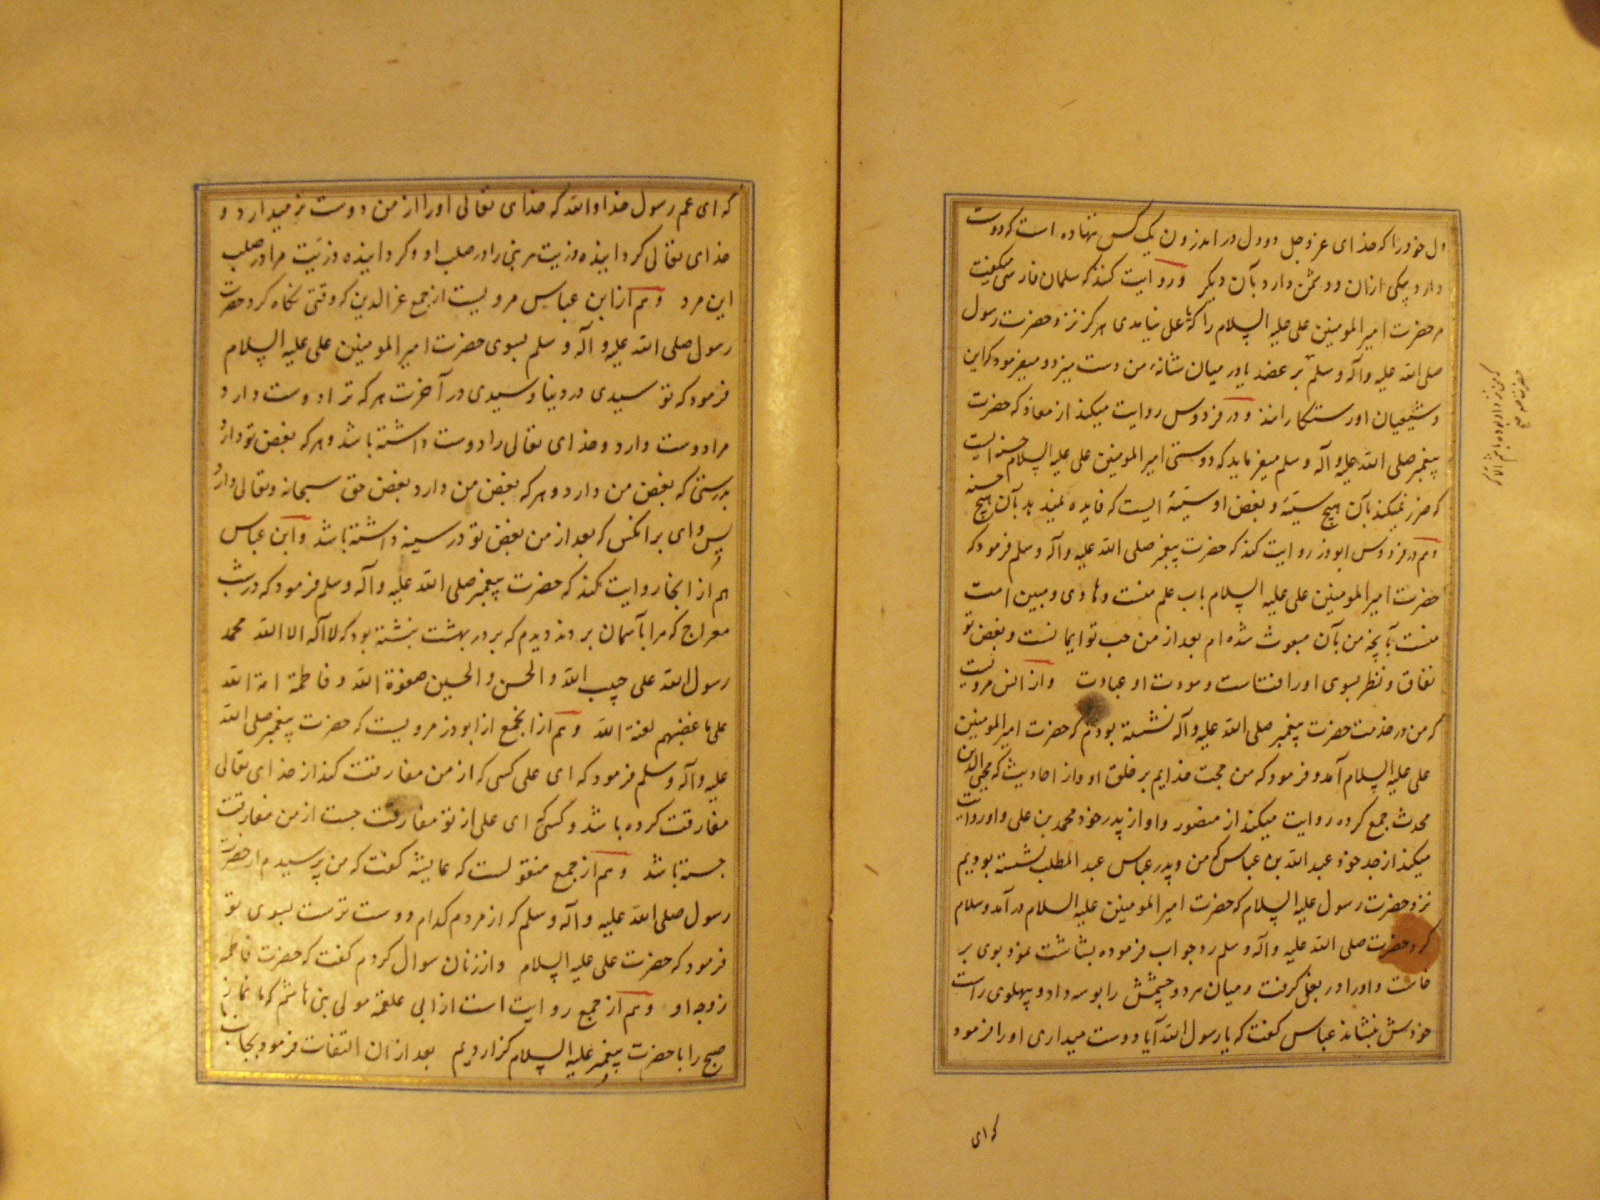 دل خود را که خدای عز و جل دو دل در اندرون یک کس ننهاده است که دوست
دارد بیکی ازان و دشمن دارد بآن دیگر و روایت کنند که سلمان فارسی میگفت
مر حضرت امیر المومنین علی علیه السلام را که یا علی نیامدی هرگز نزد حضرت رسول
صلی الله علیه و آله و سلم بر عضد یا در میان شانهٔ من دست میزد و میفرمود که این
و شیعیان او رستگارانند و در فردوس روایت میکند از معاذ که حضرت
پیغمبر صلی الله علیه و آله و سلم میفرماید که دوستی امیر المومنین علی علیه السلام حسنه ایست
که ضرر نمیکند بآن هیچ سیئهٔ و بغض او سیئهٔ ایست که فایده نمیدهد بآن هیچ حسنه
و هم در فردوس ابوذر روایت کند که حضرت پیغمبر صلی الله علیه و آله و سلم فرمود که
حضرت امیر المومنین علی علیه السلام باب علم منست و هادی و مبین امت
منست بآنچه من بآن مبعوث شده ام بعد از من حب تو ایمانست و بغض تو
نفاق و نظر بسوی او رافتست و مودت او عبادت و از انس مرویست
که من در خدمت حضرت پیغمبر صلی الله علیه و آله نشسته بودم که حضرت امیر المومنین
علی علیه السلام آمد و فرمود که من و این حجت خدایم بر خلق او و از احادیث که محیی الدین
محدث جمع کرده روایت میکند از منصور و او از پدر خود محمد بن علی و او روایت
میکند از جد خود عبد الله بن عباس که من و پدر عباس عبد المطلب نشسته بودیم
نزد حضرت رسول علیه السلام که حضرت امیر المومنین علیه السلام در آمد و سلام
کرد حضرت صلی الله علیه و آله و سلم رد جواب فرموده بشاشت نمود بوی بر
خاست و او را در بغل گرفت و میان هر دو چشمش را بوسه داد و پهلوی راست
خودش بنشاند عباس گفت که یا رسول الله آیا دوست میداری او را فرمود
که ای
که ای عم رسول خدا والله که خدای تعالی او را از من دوست تر میدارد و
خدای تعالی گردانیده ذریت هر نبی را در صلب او و گردانیده ذریت مرا در صلب
این مرد و هم از ابن عباس مرویست از جمع عز الدین که وقتی نگاه کرد حضرت
رسول صلی الله علیه و آله و سلم بسوی حضرت امیر المومنین علی علیه السلام
فرمود که تو سیدی در دنیا و سیدی در آخرت هر که ترا دوست دارد
مرا دوست دارد و خدای تعالی را دوست داشته باشد و هر که بغض تو دارد
بدرستی که بغض من دارد و هر که بغض من دارد بغض حق سبحانه و تعالی دارد
پس وای بر آنکس که بعد از من بغض تو در سینه داشته باشد و ابن عباس
هم از انجا روایت کند که حضرت پیغمبر صلی الله علیه و آله و سلم فرمود که در شب
معراج که مرا بآسمان بردند دیدم که بر در بهشت نبشته بود که لا اله الا الله محمد
رسول الله علی حبیب الله و الحسن و الحسین صفوة الله و فاطمة امة الله
علی باغضیهم لعنة الله و هم از انجمع از ابوذر مرویست که حضرت پیغمبر صلی الله
علیه و آله و سلم فرمود که ای علی کسی که از من مفارقت کند از خدای تعالی
مفارقت کرده باشد و کسی که ای علی از تو مفارقت جست از من مفارقت
جسته باشد و هم از جمع منقولست که عایشه گفت که من پرسیدم از حضرت
رسول صلی الله علیه و آله و سلم که از مردم کدام دوست ترست بسوی تو
فرمود که حضرت علی علیه السلام و از زنان سوال کردم گفت که حضرت فاطمه
زوجه او و هم از جمع روایت است از ابی علقمه مولی بنی هاشم که ما نماز
صبح را با حضرت پیغمبر علیه السلام گزاردیم بعد از ان التفات فرمود بجانب